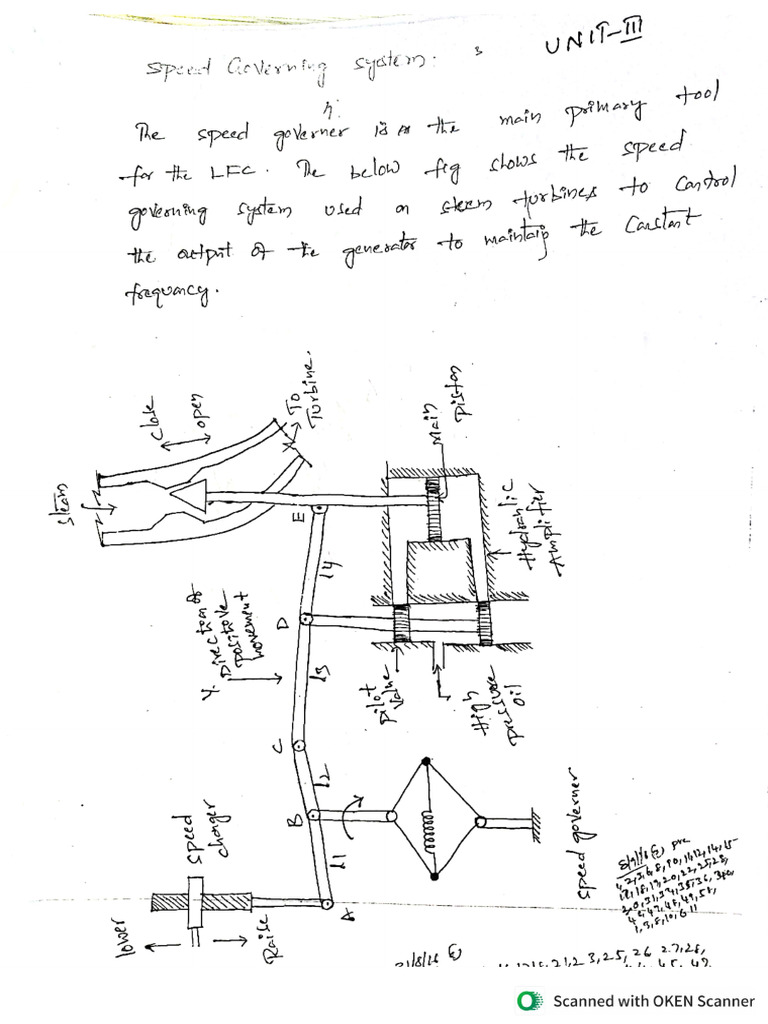 UNIT-III
Speed Governing system:
The speed governer is the main primary tool
for the LFC. The below fig shows the speed
governing system used on steam turbines to control
the output of the generator to maintain the constant
frequency.
close
open
To
Turbine.
steam
E
l4
D
Direction of
positive
movement
l3
C
l2
B
l1
A
main
piston
Hydraulic
Amplifier
pilot
valve
High
pressure
oil
speed governer
speed
changer
lower
Raise
Scanned with OKEN Scanner